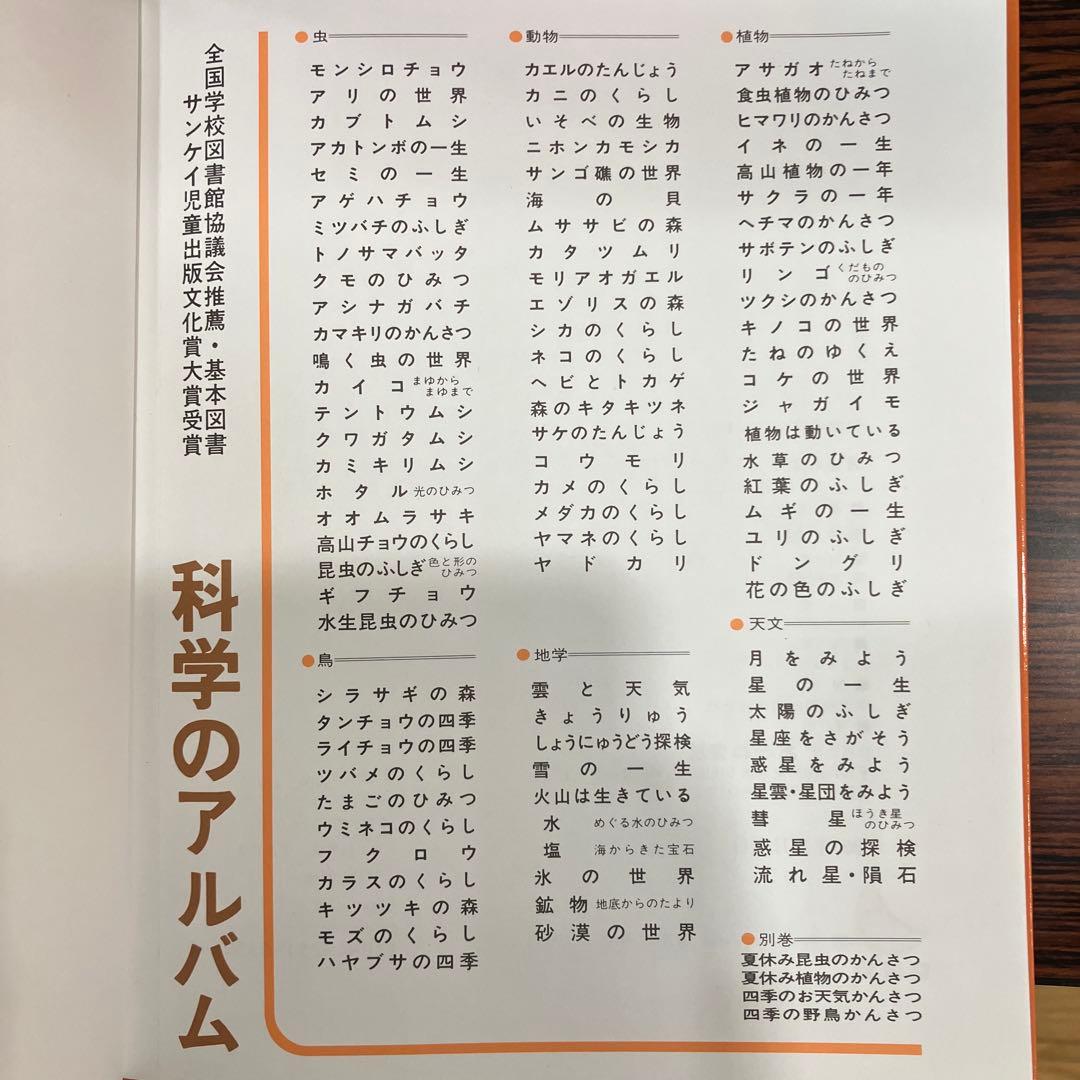 全国学校図書館協議会推薦・基本図書
サンケイ児童出版文化賞大賞受賞
科学のアルバム
●虫
モンシロチョウ
アリの世界
カブトムシ
アカトンボの一生
セミの一生
アゲハチョウ
ミツバチのふしぎ
トノサマバッタ
クモのひみつ
アシナガバチ
カマキリのかんさつ
鳴く虫の世界
カイコ まゆから まゆまで
テントウムシ
クワガタムシ
カミキリムシ
ホタル 光のひみつ
オオムラサキ
高山チョウのくらし
昆虫のふしぎ 色と形の ひみつ
ギフチョウ
水生昆虫のひみつ
●鳥
シラサギの森
タンチョウの四季
ライチョウの四季
ツバメのくらし
たまごのひみつ
ウミネコのくらし
フクロウ
カラスのくらし
キツツキの森
モズのくらし
ハヤブサの四季
●動物
カエルのたんじょう
カニのくらし
いそべの生物
ニホンカモシカ
サンゴ礁の世界
海の貝
ムササビの森
カタツムリ
モリアオガエル
エゾリスの森
シカのくらし
ネコのくらし
ヘビとトカゲ
森のキタキツネ
サケのたんじょう
コウモリ
カメのくらし
メダカのくらし
ヤマネのくらし
ヤドカリ
●地学
雲と天気
きょうりゅう
しょうにゅうどう探検
雪の一生
火山は生きている
水 めぐる水のひみつ
塩 海からきた宝石
氷の世界
鉱物 地底からのたより
砂漠の世界
●植物
アサガオ たねから たねまで
食虫植物のひみつ
ヒマワリのかんさつ
イネの一生
高山植物の一年
サクラの一年
ヘチマのかんさつ
サボテンのふしぎ
リンゴ くだもの のひみつ
ツクシのかんさつ
キノコの世界
たねのゆくえ
コケの世界
ジャガイモ
植物は動いている
水草のひみつ
紅葉のふしぎ
ムギの一生
ユリのふしぎ
ドングリ
花の色のふしぎ
●天文
月をみよう
星の一生
太陽のふしぎ
星座をさがそう
惑星をみよう
星雲・星団をみよう
彗星 ほうき星 のひみつ
惑星の探検
流れ星・隕石
●別巻
夏休み昆虫のかんさつ
夏休み植物のかんさつ
四季のお天気かんさつ
四季の野鳥かんさつ